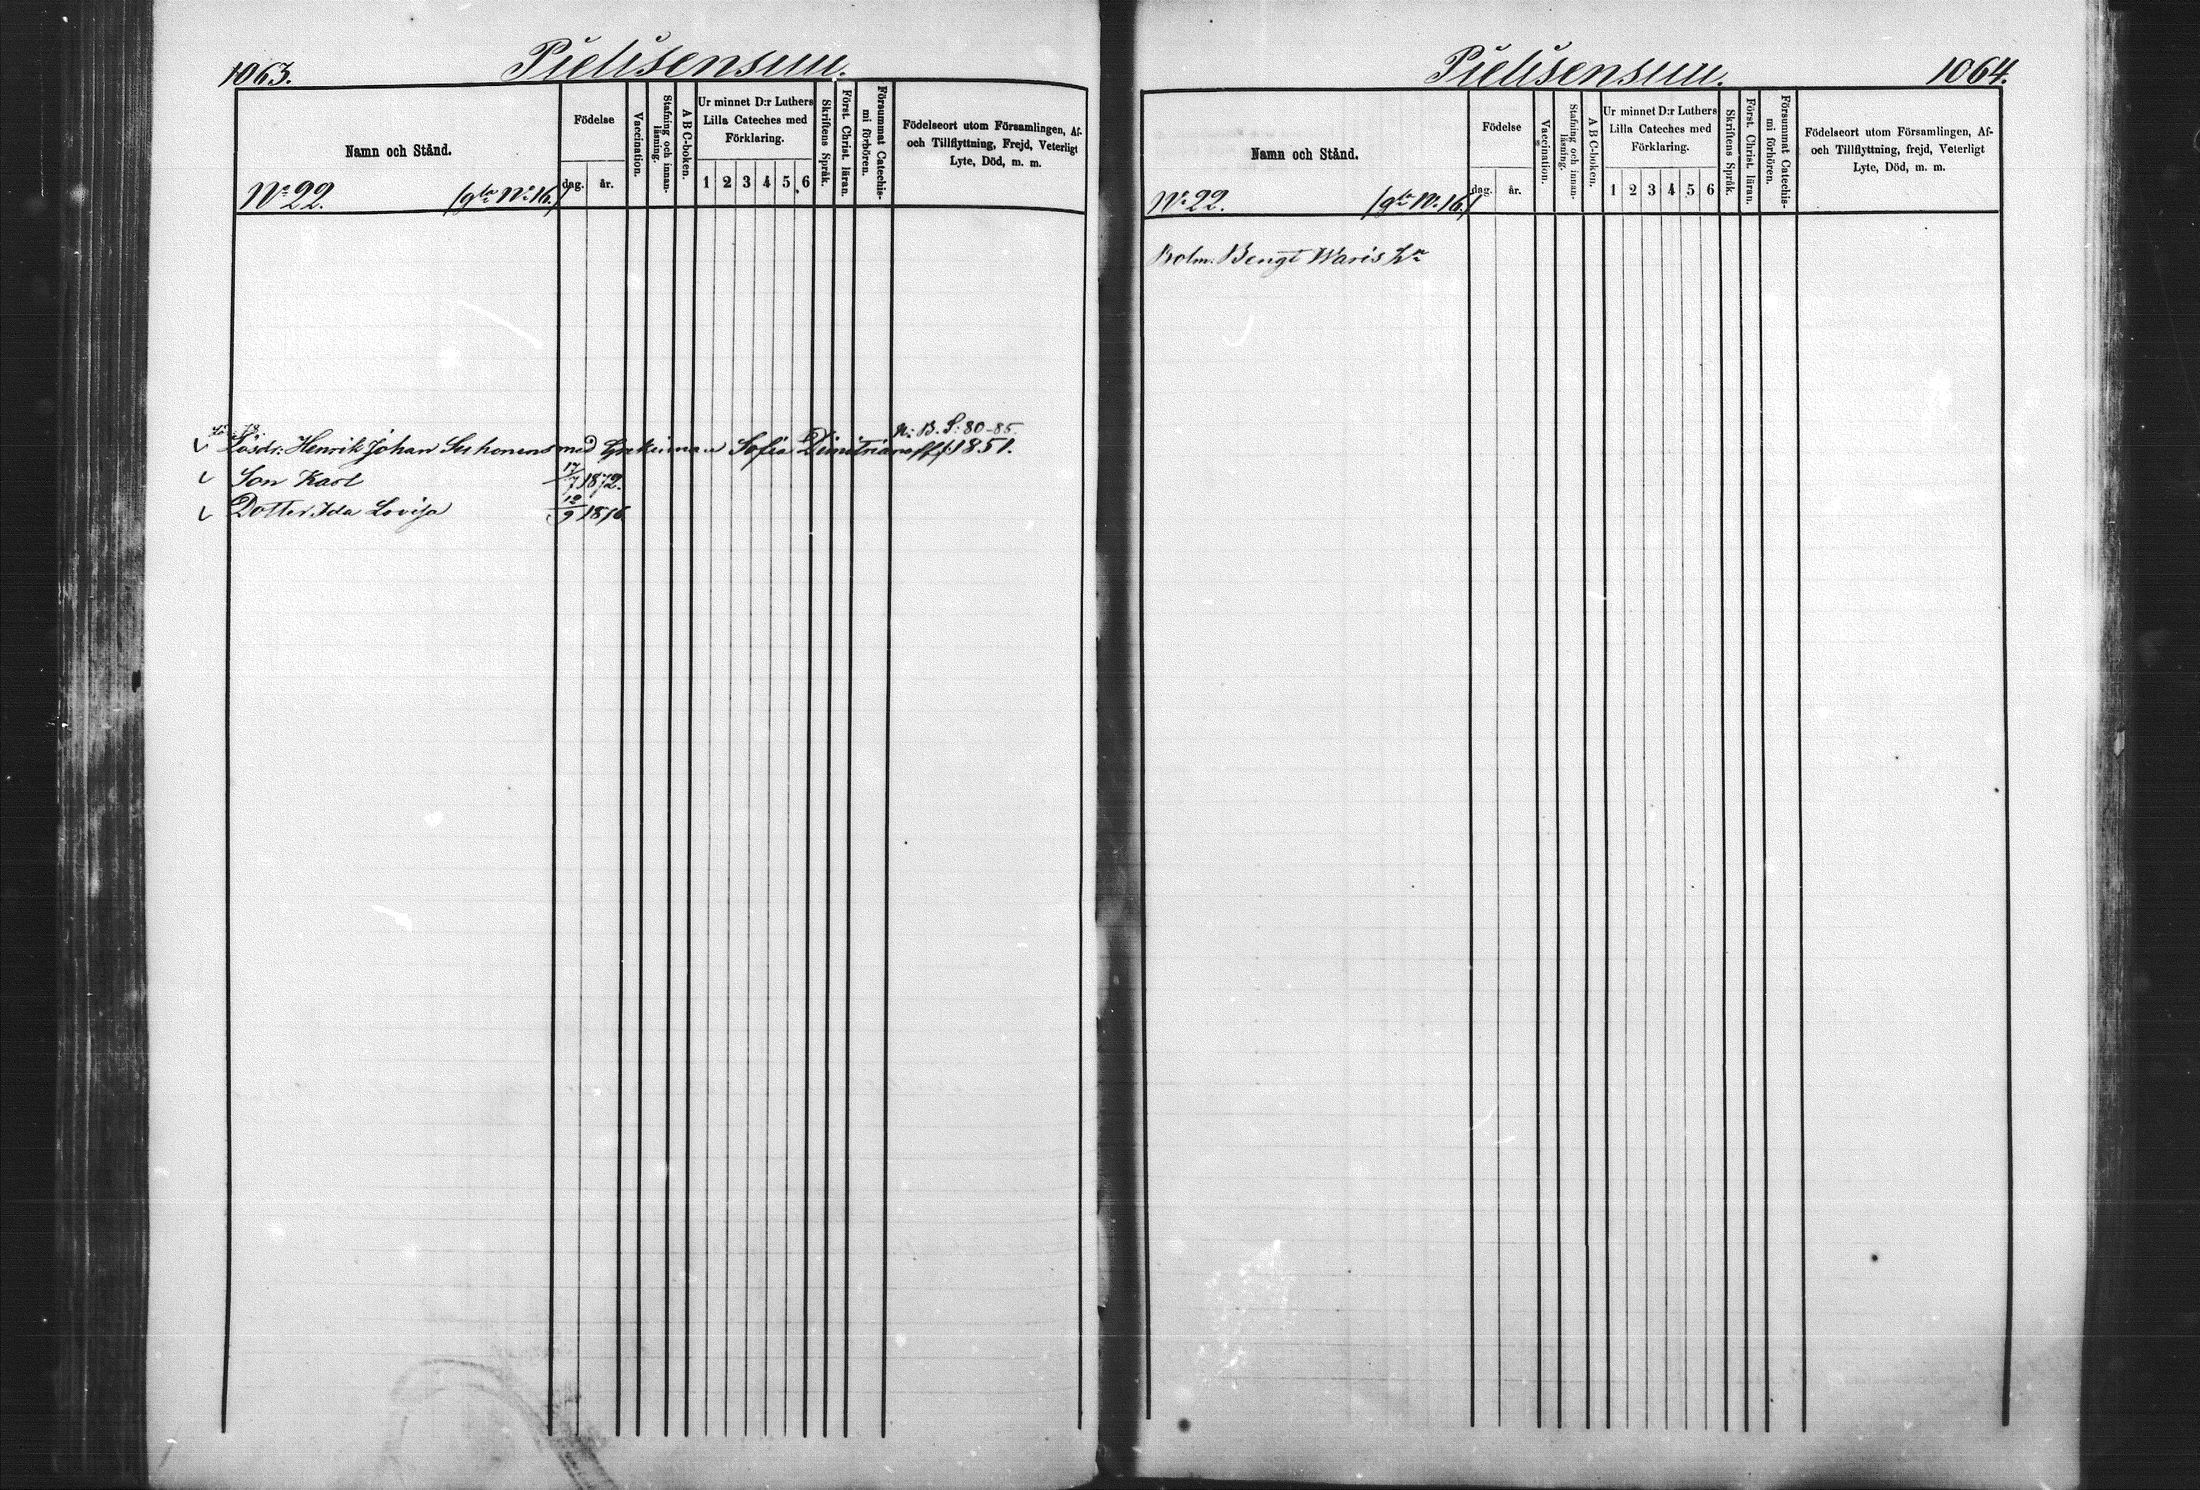 1063.
Pielisensuu.
Namn och Stånd.
Födelse
dag. år.
Vaccination.
Stafning och innan-
läsning.
A B C-boken.
Ur minnet D:r Luthers
Lilla Cateches med
Förklaring.
1 2 3 4 5 6
Skriftens Språk.
Först. Christ. läran.
Försummat Catechis-
mi förhören.
Födelseort utom Församlingen, Af-
och Tillflyttning, Frejd, Veterligt
Lyte, Död, m. m.
No 22. (gla No 16.)
B. S: 80-85.
Lösdr: Henrik Johan Suhonens med Grekinnan Sofia Dimitrianoff f 1851.
Son Karl 17/7 1872.
Dotter Ida Lovisa 12/9 1876
Pielisensuu.
1064.
Namn och Stånd.
Födelse
dag. år.
Vaccination.
Stafning och innan-
läsning.
A B C-boken.
Ur minnet D:r Luthers
Lilla Cateches med
Förklaring.
1 2 3 4 5 6
Skriftens Språk.
Först. Christ. läran.
Försummat Catechis-
mi förhören.
Födelseort utom Församlingen, Af-
och Tillflyttning, frejd, Veterligt
Lyte, Död, m. m.
No 22. (gla No 16)
Bolm. Bengt Waris